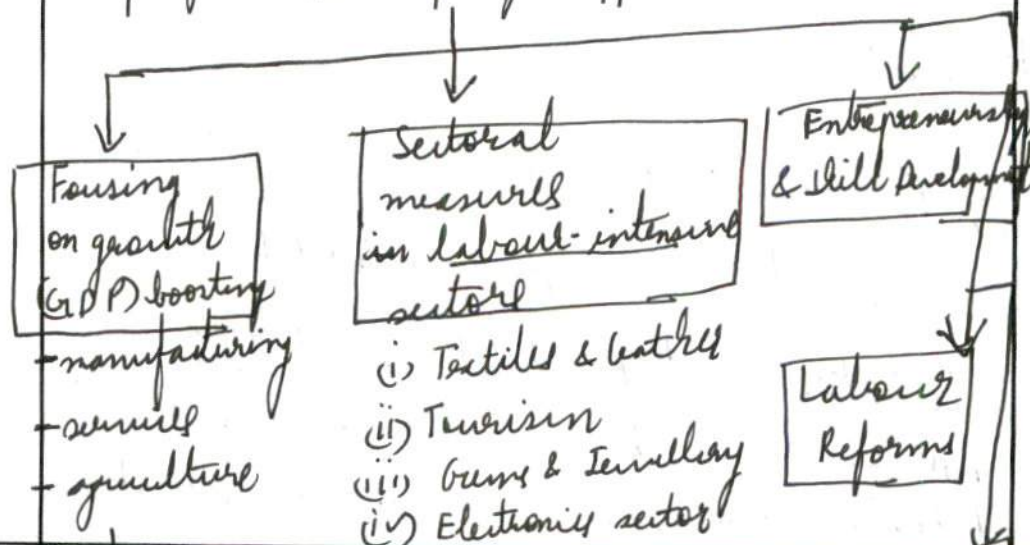 Fousing
on growth
(GDP) boosting
- manufacturing
- services
- agriculture
Sectoral
measures
in labour-intensive
sectors
(i) Textiles & leather
(ii) Tourism
(iii) Gems & Jewellery
(iv) Electronics sector
Entrepreneurship
& Skill Development
Labour
Reforms